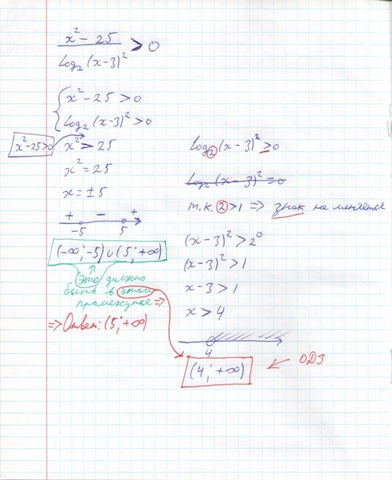 x² - 25 / log₂(x-3)² > 0
{ x² - 25 > 0
log₂(x-3)² > 0
x²-25>0
x² > 25
x² = 25
x = ±5
+ - +
-5 5
(-∞; -5) ∪ (5; +∞)
Это должно
быть в этом
промежутке =>
=> Ответ: (5; +∞)
log₂(x-3)² > 0
log₂(x-3)² = 0
т.к. 2>1 => знак не меняется
(x-3)² > 2⁰
(x-3)² > 1
x-3 > 1
x > 4
4
(4; +∞) ← ОДЗ